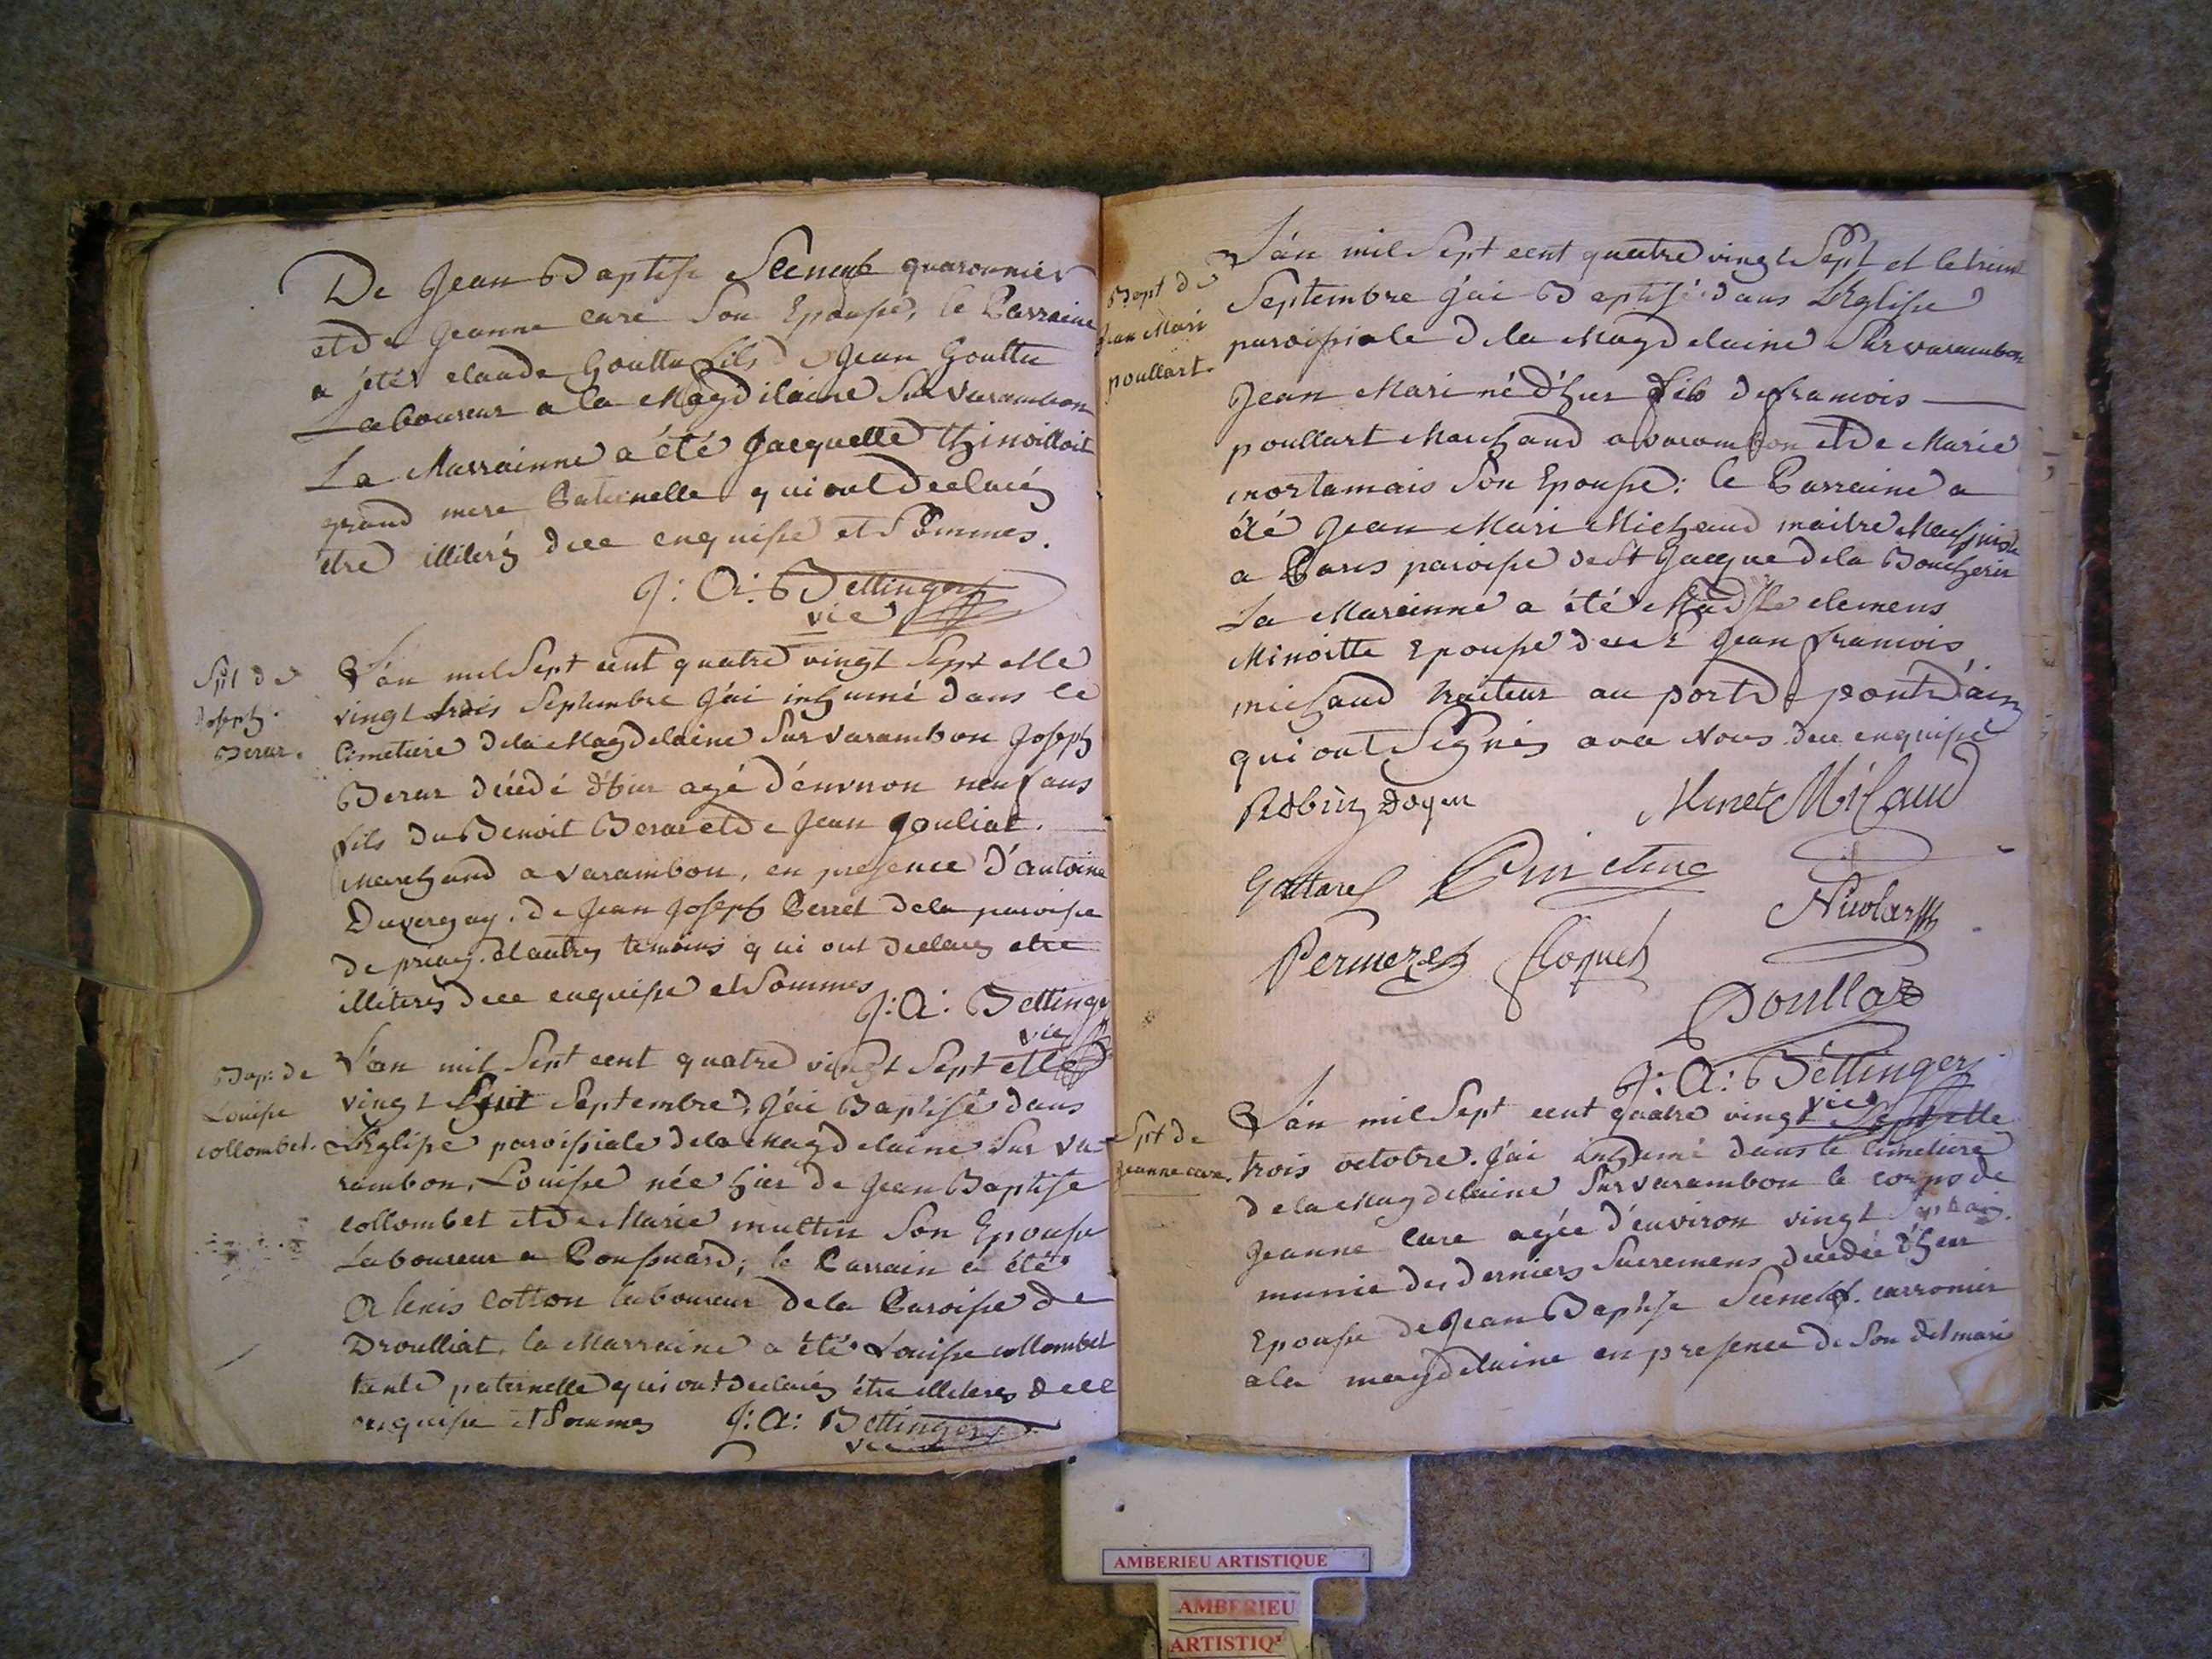 De Jean Baptiste quaronnier
et de Jeanne care Son Epouse, le Parraine
a été claude Gouttu fils de Jean Gouttu
Laboureur a la Magdilaine Sur Varambon
La Marrainne a été Jacquette
grand mere Paternelle qui ont declarés
etre illiterés dece enquise et Sommes.
J: A: Bettinger
vic
Spt de
Joseph
Berar.
L'an mil Sept cent quatre vingt Sept et le
vingt trois Septembre J'ai inhumé dans le
Cimetiere dela Magdelaine Sur Varambon Joseph
Berar décédé d'hier agé d'environ neuf ans
fils du Benoit Berar et de Jean Jouliat.
Marchand a varambon, en presence d'antoine
Duvergay. de Jean Joseph Perret dela paroise
de priay. et autres temoins qui ont declarés etre
illiterés dece enquise et Sommes
J: A: Bettinger
vic
Bap: de
Louise
collombet.
L'an mil Sept cent quatre vingt Sept et le
vingt huit Septembre, J'ai Baptisé dans
L'Eglise paroissiale dela Magdelaine Sur Va-
rambon, Louise née hier de Jean Baptiste
collombet et de Marie multin Son Epouse
Laboureur a ; le Parrain a été
Alexis Cotton laboureur dela Paroise de
Droulliat, la Marraine a été Louise collombet
tante paternelle qui ont declarés étre illiteres dece
enquise et Sommes J: A: Bettinger
vic
Bapt de
Jean Mari
poullart.
L'an mil Sept cent quatre vingt Sept et le trente
Septembre j'ai Baptisé dans L'Eglise
paroissiale de la Magdelaine Sur varambon
Jean Mari né d'hier fils de francois
poullart Marchand a varambon et de Marie
mortamais Son Epouse: le Parraine a
été Jean Mari Michaud maitre
a Paris paroise de St Jacque dela Boucherie
La Mareinne a été clemens
Minoitte Epouse de Jean francois
michaud traiteur au port de pont d'ain
qui ont Signés avec Nous dece enquise
Robin doyen
Minet Michaud
Nicolas
Cloquet
Poullar
J: A: Bettinger
vic
Spt de
Jeanne care.
L'an mil Sept cent quatre vingt Sept et le
trois octobre. J'ai inhumé dans le Cimetiere
dela Magdelaine Sur varambon le corps de
Jeanne Care agée d'environ vingt
munie des derniers Sacremens decedée d'hier
Epouse de Jean Baptiste carronier
ala magdelaine en presence de Son dit mari
AMBERIEU ARTISTIQUE
AMBERIEU
ARTISTIQ